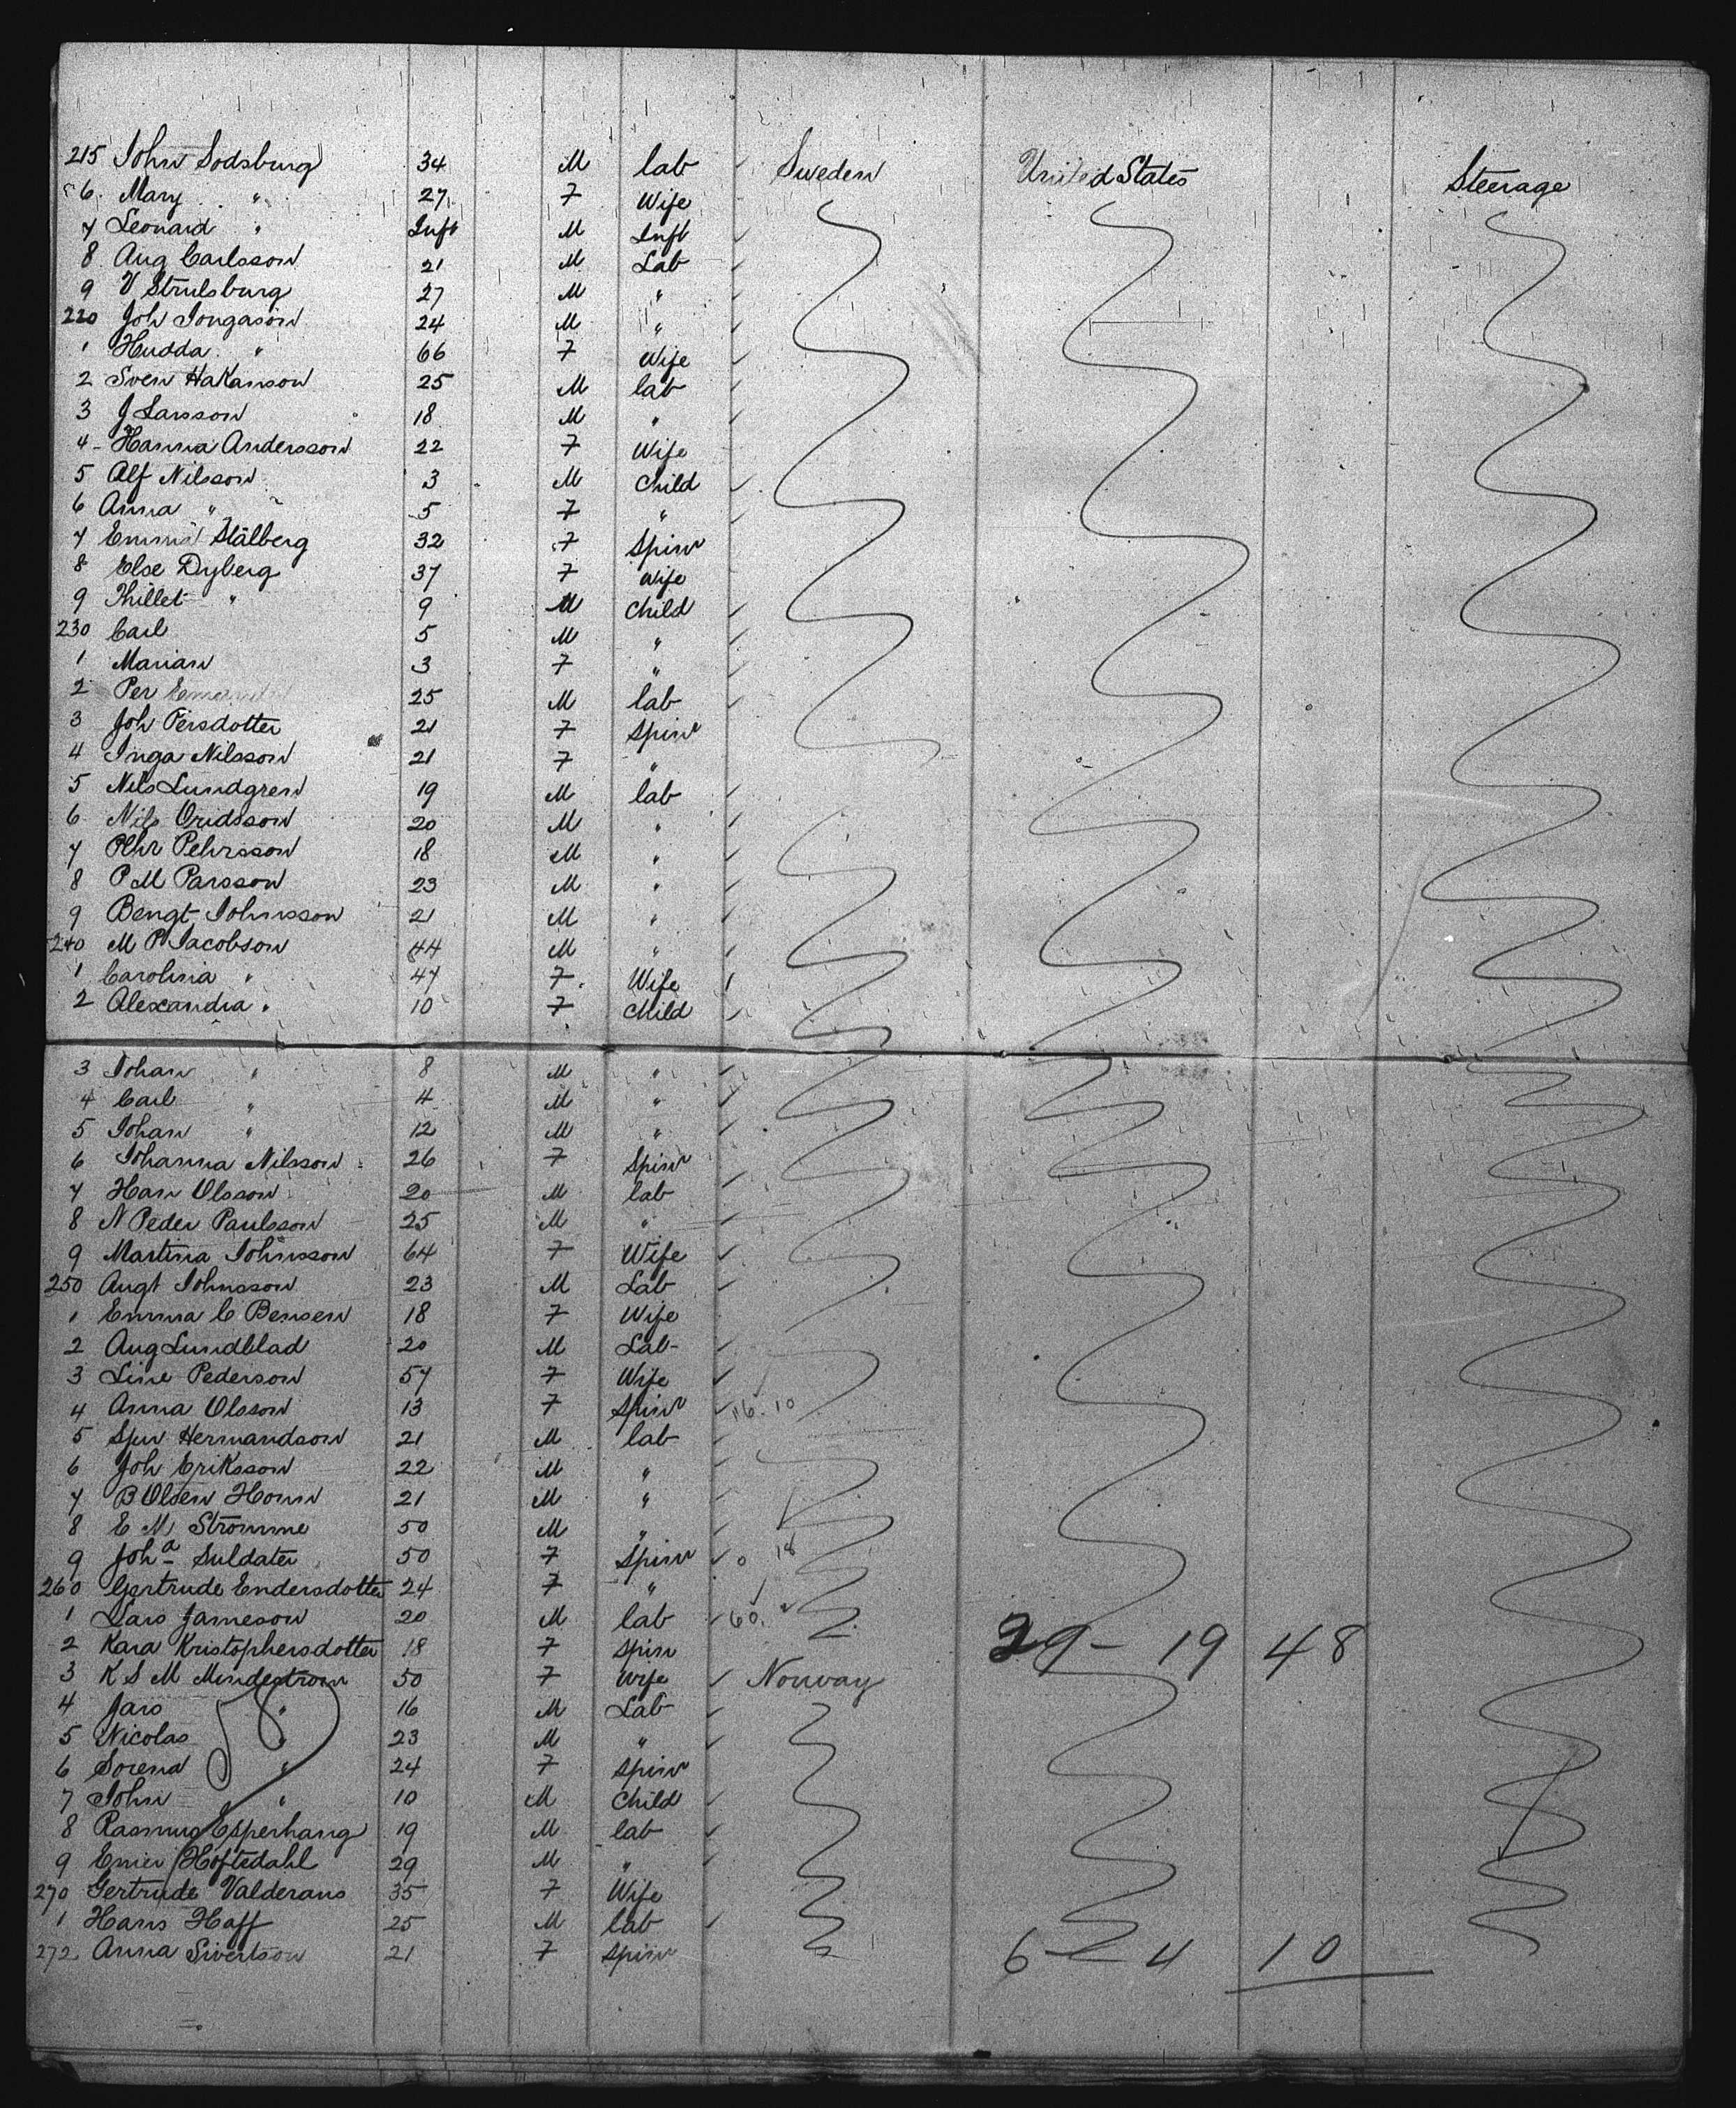 215 John Sodsburg 34 M lab Sweden United States Steerage
6 Mary " 27 F Wife
7 Leonard " Inft M Inft
8 Aug Carlsson 21 M Lab
9 V Strulsburg 27 M "
220 Joh Jongason 24 M "
1 Hudda " 66 F Wife
2 Sven Hakanson 25 M lab
3 J Larsson 18 M "
4 Hanna Andersson 22 F Wife
5 Alf Nilsson 3 M Child
6 Anna " 5 F "
7 Emma Stälberg 32 F Spin
8 Else Dyberg 37 F Wife
9 Thillet " 9 M Child
230 Carl 5 M "
1 Marian 3 F "
2 Per 25 M lab
3 Joh Persdotter 21 F Spin
4 Inga Nilsson 21 F "
5 Nils Lundgren 19 M lab
6 Nils Oridsson 20 M "
7 Pehr Pehrsson 18 M "
8 P M Parsson 23 M "
9 Bengt Johnsson 21 M "
240 M P Jacobson 44 M "
1 Carolina " 47 F Wife
2 Alexandra " 10 F Child
3 Johan " 8 M "
4 Carl " 4 M "
5 Johan " 12 M "
6 Johanna Nilsson 26 F Spin
7 Han Olsson 20 M lab
8 N Peder Paulsson 25 M "
9 Martina Johnsson 64 F Wife
250 Augt Johnsson 23 M Lab
1 Emma C Bensen 18 F Wife
2 Aug Lundblad 20 M Lab
3 Line Pederson 57 F Wife
4 Anna Olsson 13 F Spin 16.10
5 Spen Hermandson 21 M lab
6 Joh Eriksson 22 M "
7 B Olsen Honn 21 M "
8 E M Stromme 50 M "
9 Joha Suldater 50 F Spin 0 18
260 Gertrude Endersdotter 24 F "
1 Lars Jameson 20 M lab 60.
2 Kara Kristophersdotter 18 F Spin 29 - 19 48
3 K S M Mindestrom 50 F Wife Norway
4 Jars " 16 M Lab
5 Nicolas " 23 M "
6 Sorend " 24 F Spin
7 John " 10 M Child
8 Rasmus Esperhang 19 M lab
9 Enier Hoftedahl 29 M "
270 Gertrude Valderans 35 F Wife
1 Hans Haff 25 M lab
272 Anna Sivertson 21 F Spin 6 - 4 10